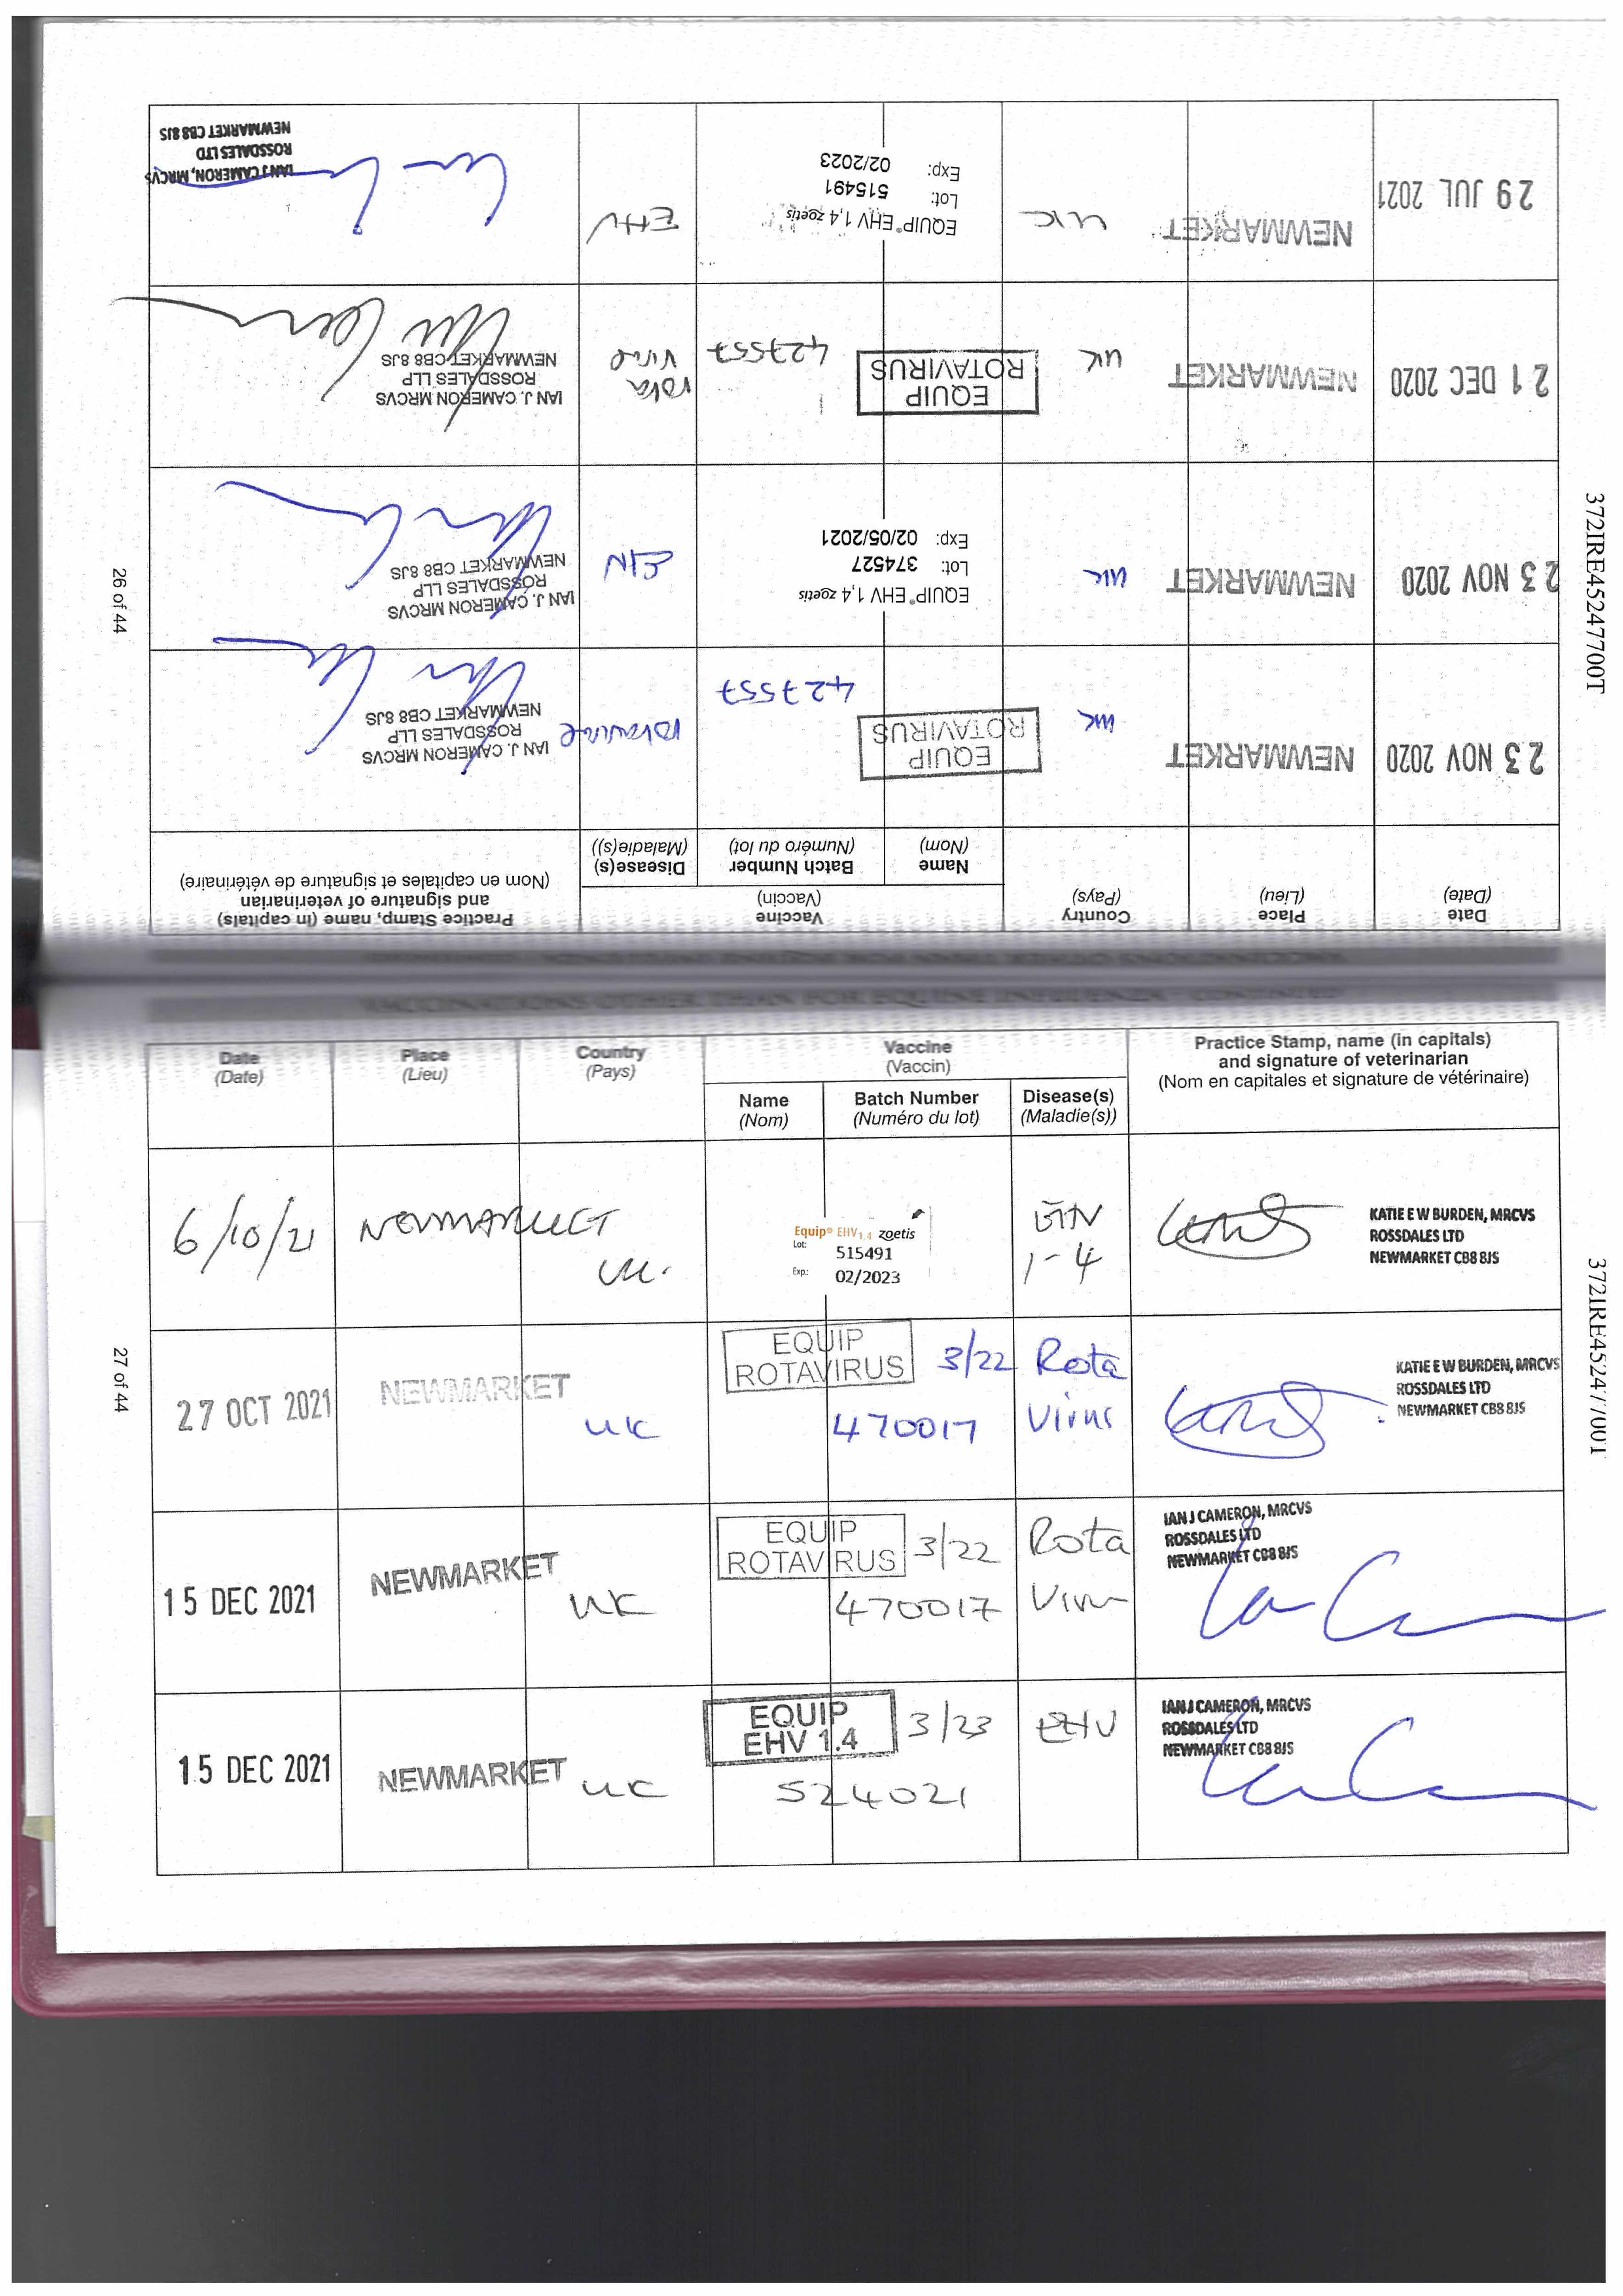 372IRE45247700T
Date
(Date)
Place
(Lieu)
Country
(Pays)
Vaccine
(Vaccin)
Name
(Nom)
Batch Number
(Numéro du lot)
Disease(s)
(Maladie(s))
Practice Stamp, name (in capitals)
and signature of veterinarian
(Nom en capitales et signature de vétérinaire)
23 NOV 2020
NEWMARKET
UK
EQUIP
ROTAVIRUS
427557
IAN J. CAMERON MRCVS
ROSSDALES LLP
NEWMARKET CB8 8JS
23 NOV 2020
NEWMARKET
UK
EQUIP® EHV 1,4 zoetis
Lot: 374527
Exp: 02/05/2021
IAN J. CAMERON MRCVS
ROSSDALES LLP
NEWMARKET CB8 8JS
21 DEC 2020
NEWMARKET
UK
EQUIP
ROTAVIRUS
427557
Rota
IAN J. CAMERON MRCVS
ROSSDALES LLP
NEWMARKET CB8 8JS
29 JUL 2021
NEWMARKET
UK
EQUIP® EHV 1,4 zoetis
Lot: 515491
Exp: 02/2023
EHV
IAN J CAMERON, MRCVS
ROSSDALES LTD
NEWMARKET CB8 8JS
26 of 44
Date
(Date)
Place
(Lieu)
Country
(Pays)
Vaccine
(Vaccin)
Name
(Nom)
Batch Number
(Numéro du lot)
Disease(s)
(Maladie(s))
Practice Stamp, name (in capitals)
and signature of veterinarian
(Nom en capitales et signature de vétérinaire)
6/10/21
NEWMARKET
Equip® EHV1,4 zoetis
Lot: 515491
Exp.: 02/2023
1-4
KATIE E W BURDEN, MRCVS
ROSSDALES LTD
NEWMARKET CB8 8JS
27 OCT 2021
NEWMARKET
UK
EQUIP
ROTAVIRUS
3/22
470017
Rota
Virus
KATIE E W BURDEN, MRCVS
ROSSDALES LTD
NEWMARKET CB8 8JS
15 DEC 2021
NEWMARKET
UK
EQUIP
ROTAVIRUS
3/22
470017
Rota
Virus
IAN J CAMERON, MRCVS
ROSSDALES LTD
NEWMARKET CB8 8JS
15 DEC 2021
NEWMARKET
UK
EQUIP
EHV 1.4
3/23
524021
EHV
IAN J CAMERON, MRCVS
ROSSDALES LTD
NEWMARKET CB8 8JS
27 of 44
372IRE45247700T